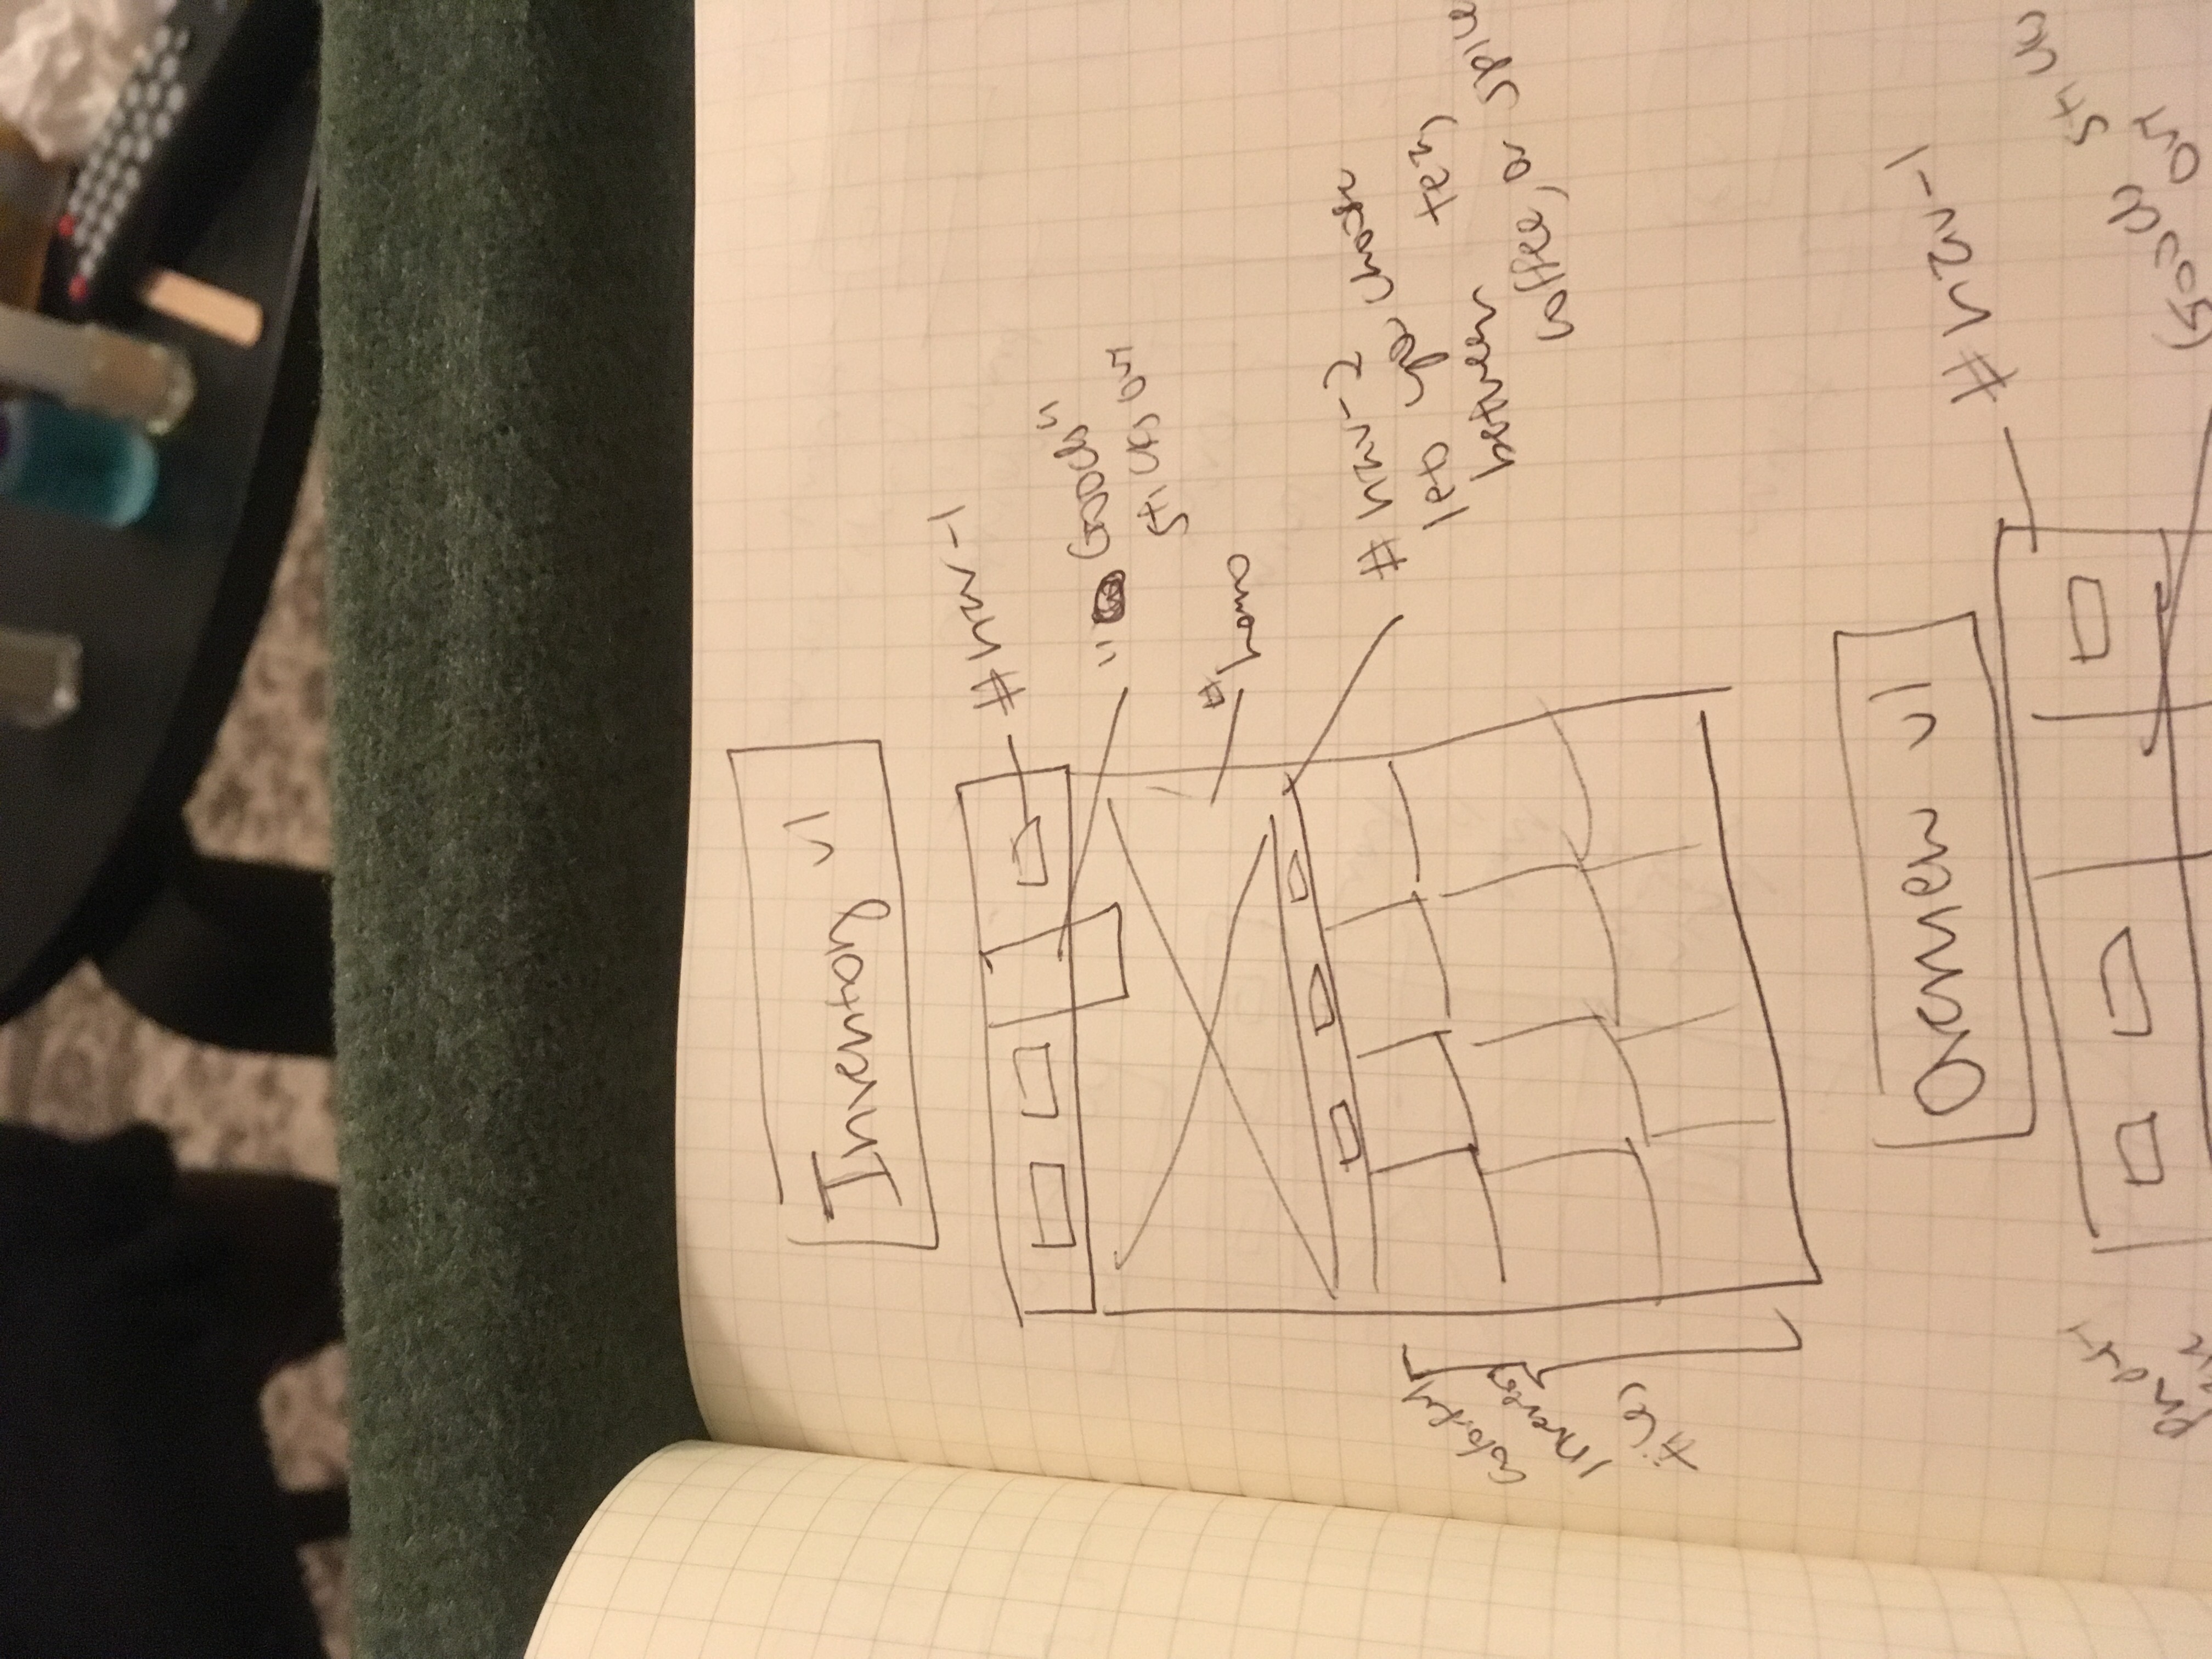 Inventory v1
#nav-1
"Goods"
sticks out
#hero
#nav-2
lets you choose
between tea,
coffee, or spice
Inventory
tiles
Overview v1
#nav-1
Goods sticks
out